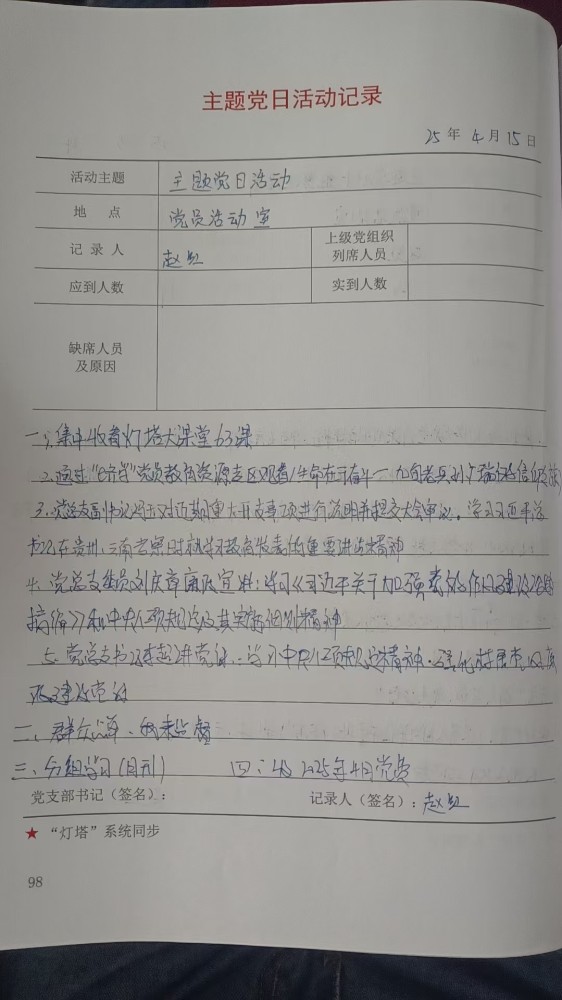 主题党日活动记录
25 年 4 月 15 日
活动主题 主题党日活动
地 点 党员活动室
记 录 人 赵 上级党组织列席人员
应到人数 实到人数
缺席人员及原因
一、1、集中收看灯塔大课堂63课
2、通过“e资源”党员教育资源专区观看《生命在于奋斗——九旬老兵刘
3、对近期重大开支事项进行说明并提交大会审议。学习习近平总
书记在贵州、云南考察时的重要讲话精神
4、党总支委员刘庆章廉政宣料：学习《习近平关于加强党的作风建设论述
摘编》和中央八项规定及其实施细则精神
5、党总支书记讲党课：学习中央八项规定精神，强化
二、群众点单、我来监督
三、分组学习（月刊） 四、2025年4月党费
党支部书记（签名）： 记录人（签名）：赵
★ “灯塔”系统同步
98